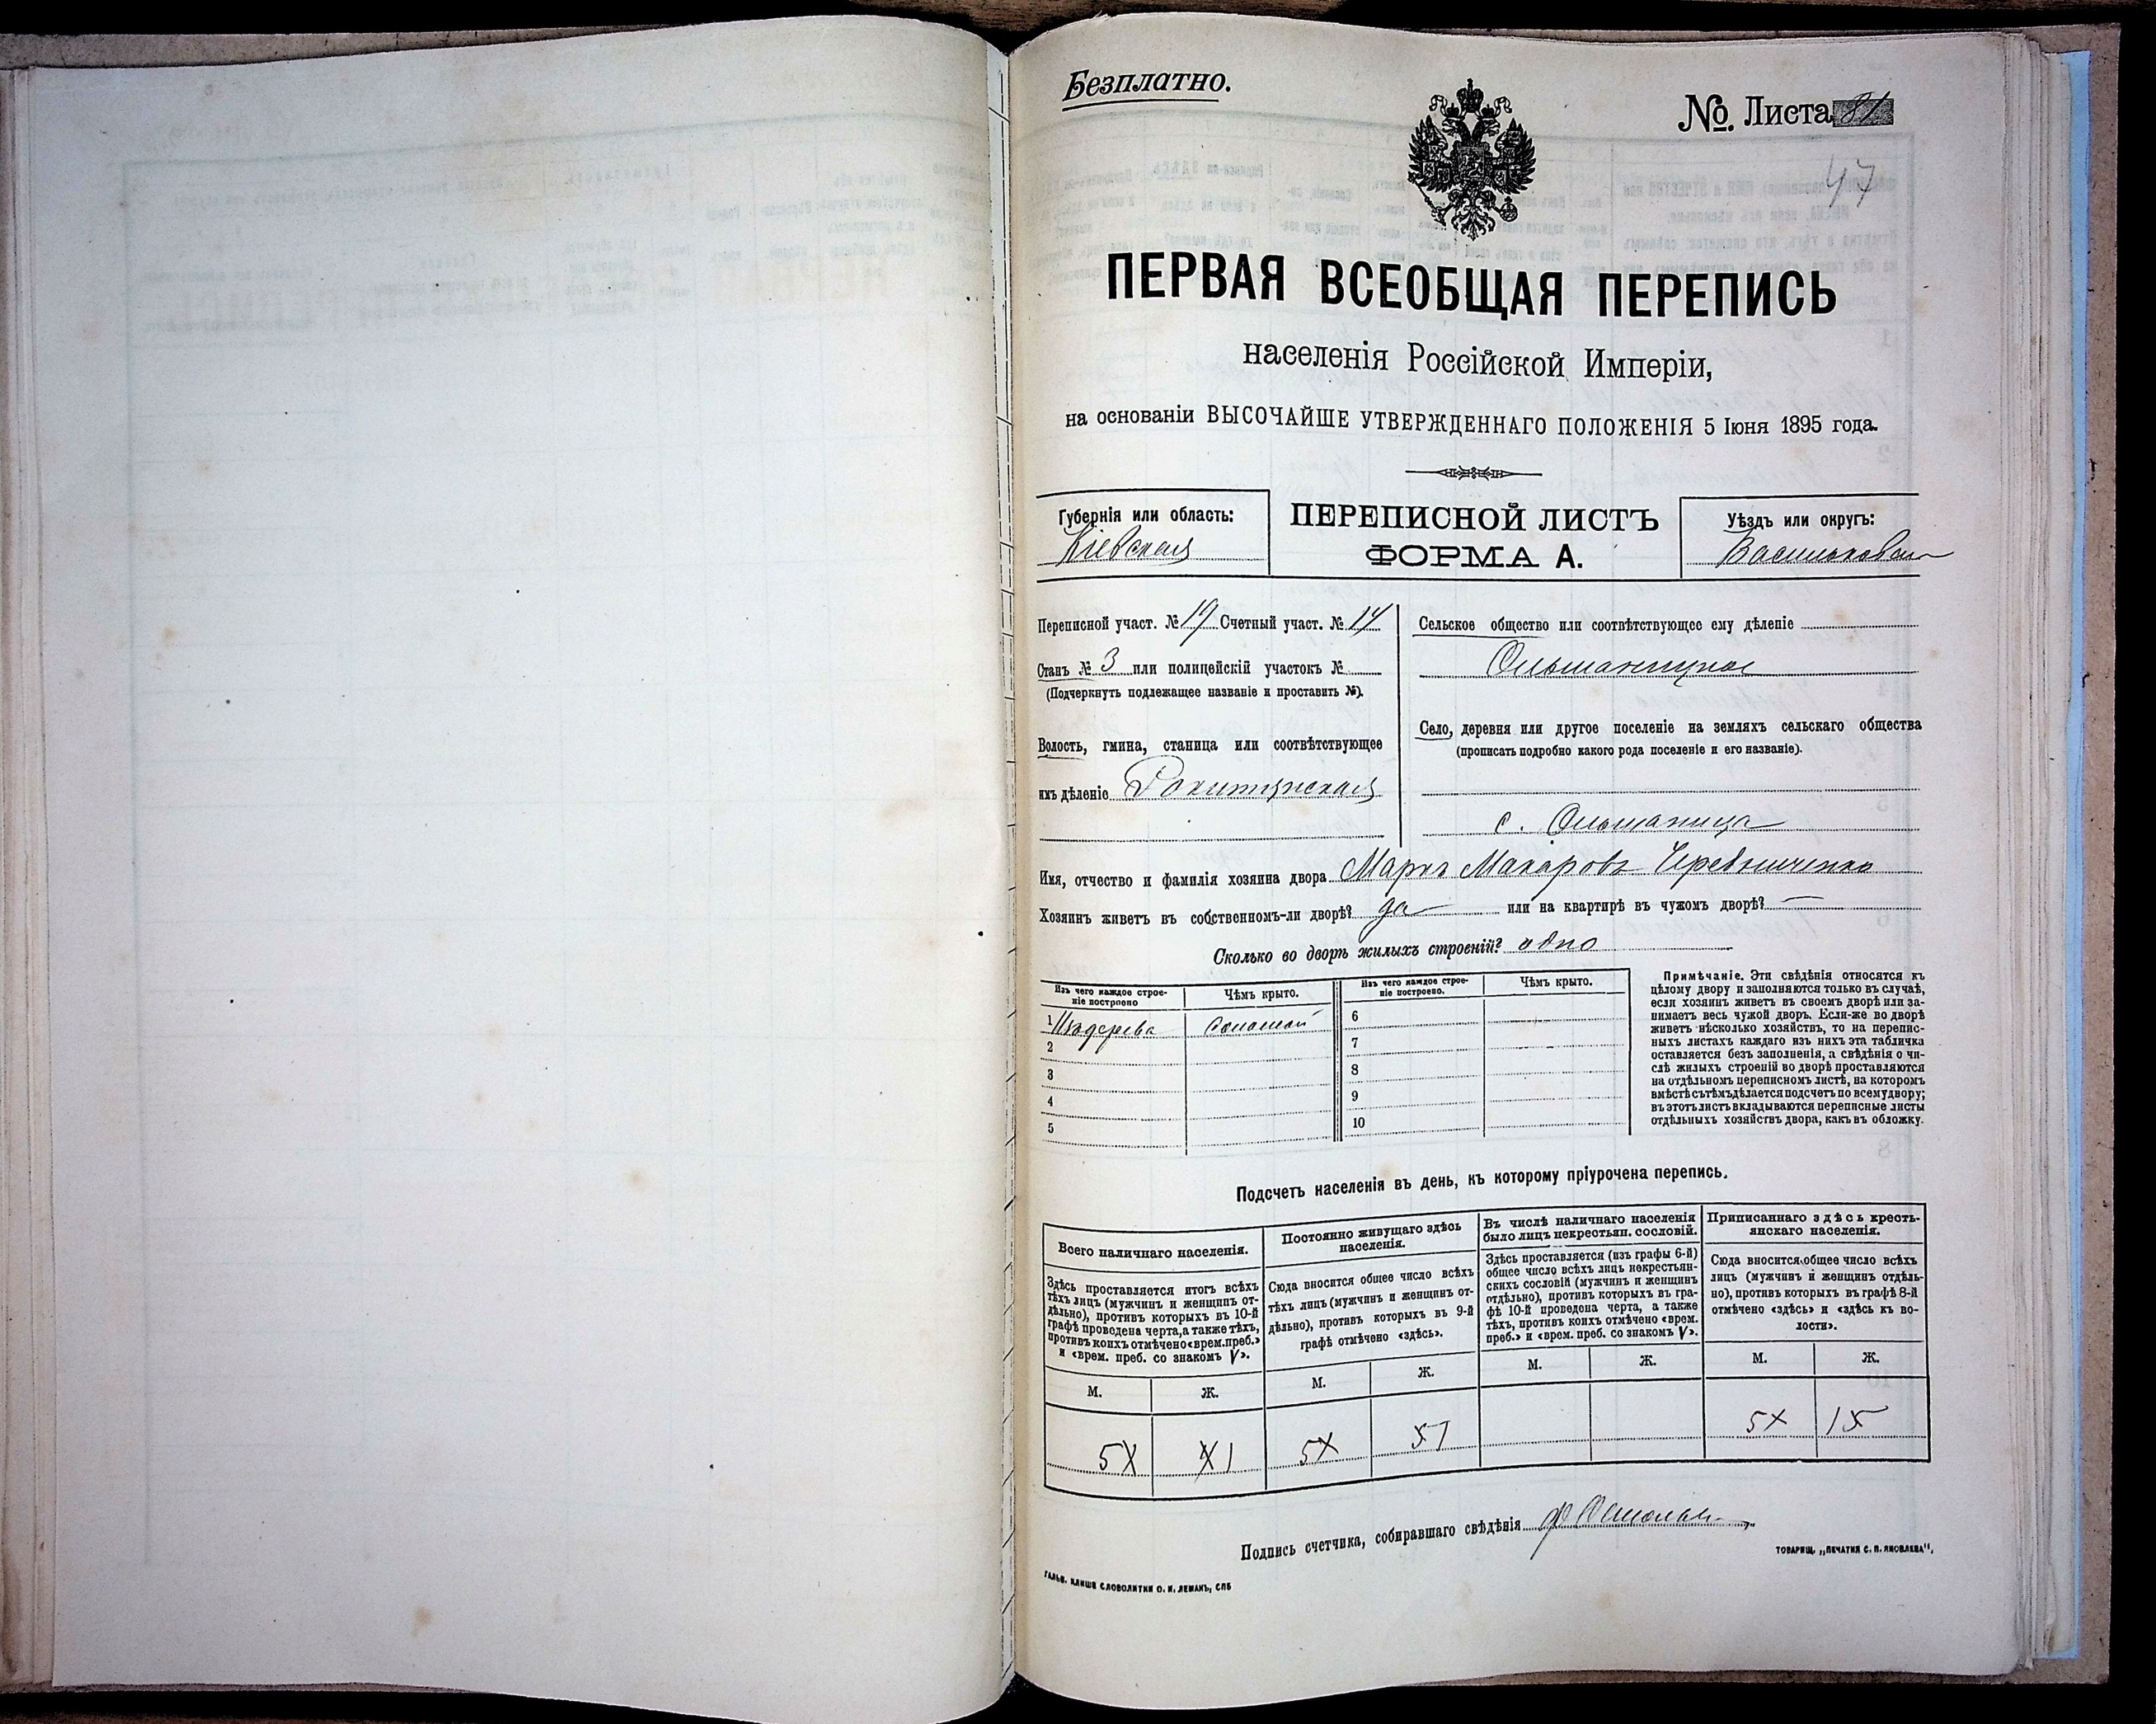 Безплатно.
№. Листа 81
47
ПЕРВАЯ ВСЕОБЩАЯ ПЕРЕПИСЬ
населенія Россійской Имперіи,
на основаніи ВЫСОЧАЙШЕ УТВЕРЖДЕННАГО ПОЛОЖЕНІЯ 5 Іюня 1895 года.
Губернія или область:
Кіевская
ПЕРЕПИСНОЙ ЛИСТЪ
ФОРМА А.
Уѣздъ или округъ:
Васильковскій
Переписной участ. № 19 Счетный участ. № 14
Станъ № 3 или полицейскій участокъ №
(Подчеркнуть подлежащее названіе и проставить №).
Волость, гмина, станица или соотвѣтствующее
имъ дѣленіе Рокитянская
Сельское общество или соотвѣтствующее ему дѣленіе
Ольшаницкое
Село, деревня или другое поселеніе на земляхъ сельскаго общества
(прописать подробно какого рода поселеніе и его названіе).
с. Ольшаница
Имя, отчество и фамилія хозяина двора Марко Макаровъ Чередниченко
Хозяинъ живетъ въ собственномъ-ли дворѣ? да или на квартирѣ въ чужомъ дворѣ? —
Сколько во дворѣ жилыхъ строеній? одно
Изъ чего каждое строе-
ніе построено
Чѣмъ крыто.
Изъ чего каждое строе-
ніе построено.
Чѣмъ крыто.
1 Изъ дерева соломой 6
2 7
3 8
4 9
5 10
Примѣчаніе. Эти свѣдѣнія относятся къ
цѣлому двору и заполняются только въ случаѣ,
если хозяинъ живетъ въ своемъ дворѣ или за-
нимаетъ весь чужой дворъ. Если-же во дворѣ
живетъ нѣсколько хозяйствъ, то на перепис-
ныхъ листахъ каждаго изъ нихъ эта табличка
оставляется безъ заполненія, а свѣдѣнія о чи-
слѣ жилыхъ строеній во дворѣ проставляются
на отдѣльномъ переписномъ листѣ, на которомъ
вмѣстѣ съ тѣмъ дѣлается подсчетъ по всему двору;
въ этотъ листъ вкладываются переписные листы
отдѣльныхъ хозяйствъ двора, какъ въ обложку.
Подсчетъ населенія въ день, къ которому пріурочена перепись.
Всего наличнаго населенія.
Здѣсь проставляется итогъ всѣхъ
тѣхъ лицъ (мужчинъ и женщинъ от-
дѣльно), противъ которыхъ въ 10-й
графѣ проведена черта, а также тѣхъ,
противъ коихъ отмѣчено «врем. преб.»
и «врем. преб. со знакомъ V».
М. Ж.
5X X1
Постоянно живущаго здѣсь
населенія.
Сюда вносится общее число всѣхъ
тѣхъ лицъ (мужчинъ и женщинъ от-
дѣльно), противъ которыхъ въ 9-й
графѣ отмѣчено «здѣсь».
М. Ж.
Въ числѣ наличнаго населенія
было лицъ некрестьян. сословій.
Здѣсь проставляется (изъ графы 6-й)
общее число всѣхъ лицъ некрестьян-
скихъ сословій (мужчинъ и женщинъ
отдѣльно), противъ которыхъ въ гра-
фѣ 10-й проведена черта, а также
тѣхъ, противъ коихъ отмѣчено «врем.
преб.» и «врем. преб. со знакомъ V».
М. Ж.
Приписаннаго здѣсь кресть-
янскаго населенія.
Сюда вносится общее число всѣхъ
лицъ (мужчинъ и женщинъ отдѣль-
но), противъ которыхъ въ графѣ 8-й
отмѣчено «здѣсь» и «здѣсь къ во-
лости».
М. Ж.
Подпись счетчика, собиравшаго свѣдѣнія
ГАЛЬВ. КЛИШЕ СЛОВОЛИТНИ О. И. ЛЕМАНЪ, СПБ
ТОВАРИЩ. „ПЕЧАТНЯ С. П. ЯКОВЛЕВА",